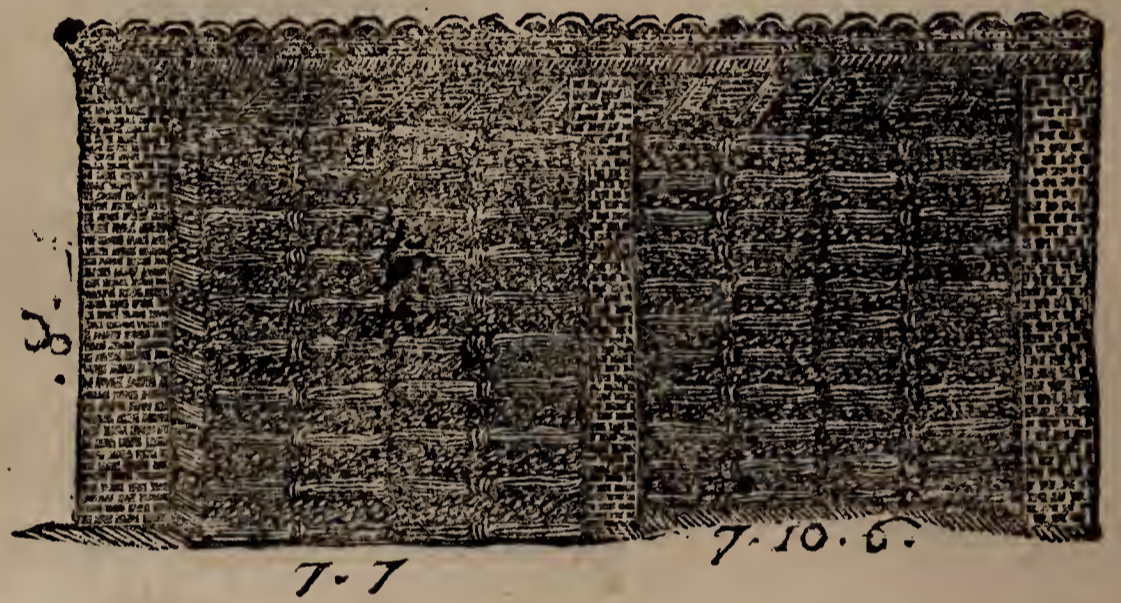 7-7
7-10.6.